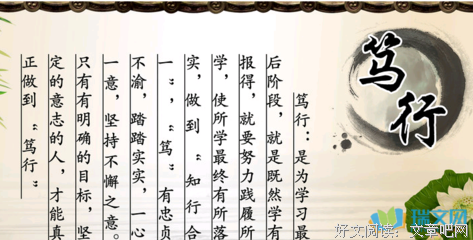 笃行
笃行：是为学习最
后阶段，就是既然学有
报得，就要努力践履所
学，使所学最终有所落
实，做到“知行合
一”，“笃”有忠贞
不渝，踏踏实实，一心
一意，坚持不懈之意。
只有有明确的目标，坚
定的意志的人，才能真
正做到“笃行”
瑞文网
好文阅读：文章吧网